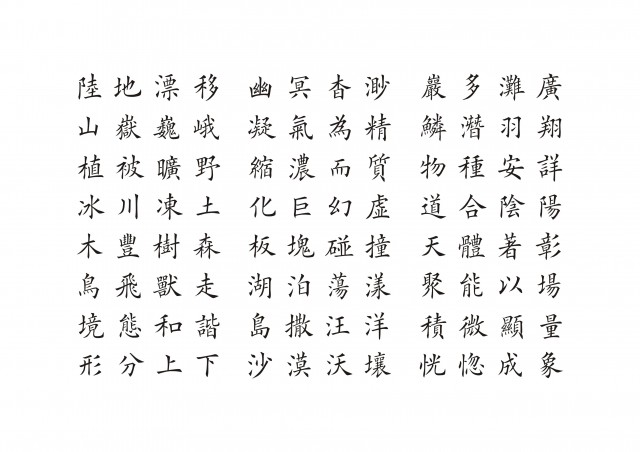 陸地漂移 幽冥杳渺 巖多灘廣
山嶽巍峨 凝氣為精 鱗潛羽翔
植被曠野 縮濃而質 物種安詳
冰川凍土 化巨幻虛 道合陰陽
木豐樹森 板塊碰撞 天體著彰
鳥飛獸走 湖泊蕩漾 聚能以場
境態和諧 島撒汪洋 積微顯量
形分上下 沙漠沃壤 恍惚成象